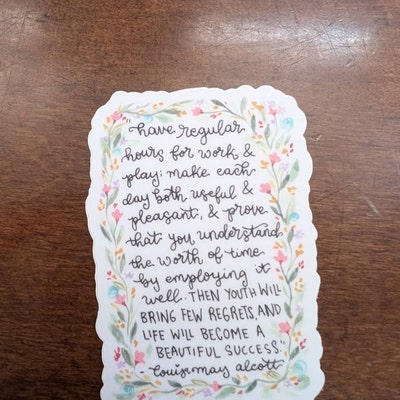 "have regular
hours for work &
play; make each
day both useful &
pleasant, & prove
that you understand
the worth of time
by employing it
well. THEN YOUTH WILL
BRING FEW REGRETS, AND
LIFE WILL BECOME A
BEAUTIFUL SUCCESS."
louisa may alcott